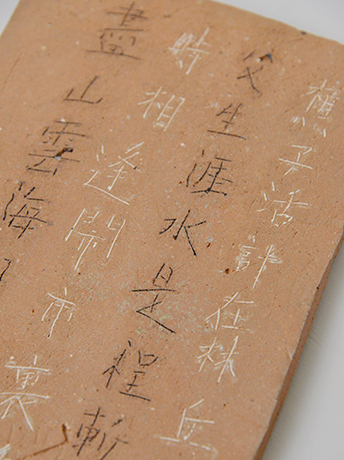 樵子活計在林丘
父生涯水是程暫
時相逢鬧市裏
盡山雲海